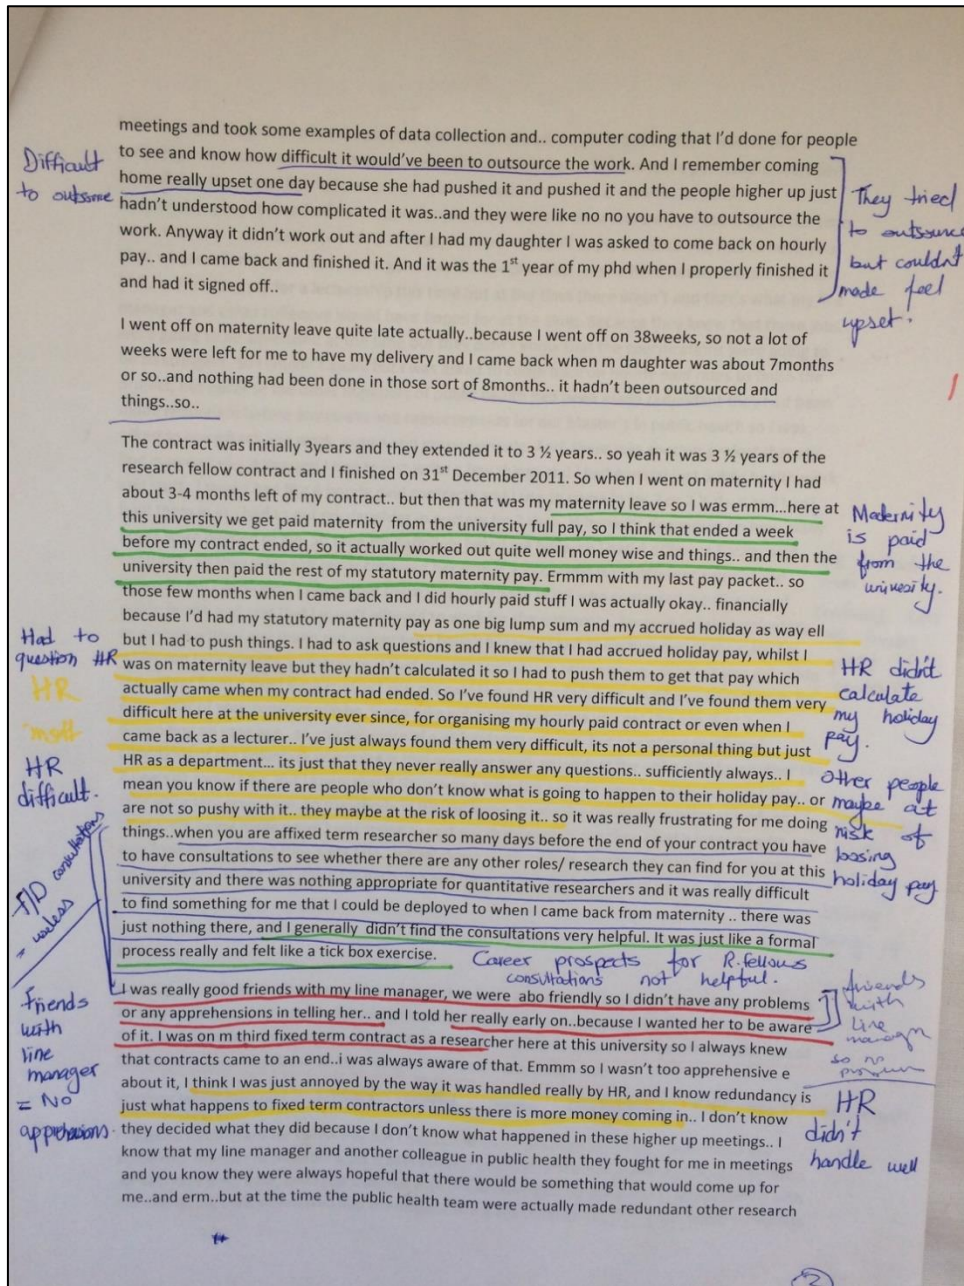 meetings and took some examples of data collection and.. computer coding that I'd done for people
to see and know how difficult it would've been to outsource the work. And I remember coming
home really upset one day because she had pushed it and pushed it and the people higher up just
hadn't understood how complicated it was..and they were like no no you have to outsource the
work. Anyway it didn't work out and after I had my daughter I was asked to come back on hourly
pay.. and I came back and finished it. And it was the 1st year of my phd when I properly finished it
and had it signed off..
Difficult
to outsome
They tried
to outsource
but couldn't
made feel
upset.
I went off on maternity leave quite late actually..because I went off on 38weeks, so not a lot of
weeks were left for me to have my delivery and I came back when m daughter was about 7months
or so..and nothing had been done in those sort of 8months.. it hadn't been outsourced and
things..so..
The contract was initially 3years and they extended it to 3 ½ years.. so yeah it was 3 ½ years of the
research fellow contract and I finished on 31st December 2011. So when I went on maternity I had
about 3-4 months left of my contract.. but then that was my maternity leave so I was ermm...here at
this university we get paid maternity from the university full pay, so I think that ended a week
before my contract ended, so it actually worked out quite well money wise and things.. and then the
university then paid the rest of my statutory maternity pay. Ermmm with my last pay packet.. so
those few months when I came back and I did hourly paid stuff I was actually okay.. financially
because I'd had my statutory maternity pay as one big lump sum and my accrued holiday as way ell
but I had to push things. I had to ask questions and I knew that I had accrued holiday pay, whilst I
was on maternity leave but they hadn't calculated it so I had to push them to get that pay which
actually came when my contract had ended. So I've found HR very difficult and I've found them very
difficult here at the university ever since, for organising my hourly paid contract or even when I
came back as a lecturer.. I've just always found them very difficult, its not a personal thing but just
HR as a department... its just that they never really answer any questions.. sufficiently always.. I
mean you know if there are people who don't know what is going to happen to their holiday pay.. or
are not so pushy with it.. they maybe at the risk of loosing it.. so it was really frustrating for me doing
things..when you are affixed term researcher so many days before the end of your contract you have
to have consultations to see whether there are any other roles/ research they can find for you at this
university and there was nothing appropriate for quantitative researchers and it was really difficult
to find something for me that I could be deployed to when I came back from maternity .. there was
just nothing there, and I generally didn't find the consultations very helpful. It was just like a formal
process really and felt like a tick box exercise.
Maternity
is paid
from the
university.
Had to
question HR
HR
HR
difficult.
HR didn't
calculate
my holiday
pay.
Other people
maybe at
risk of
loosing
holiday pay
F/D consultations
= useless
Career prospects for R.fellows
consultations not helpful.
I was really good friends with my line manager, we were abo friendly so I didn't have any problems
or any apprehensions in telling her.. and I told her really early on..because I wanted her to be aware
of it. I was on m third fixed term contract as a researcher here at this university so I always knew
that contracts came to an end..i was always aware of that. Emmm so I wasn't too apprehensive e
about it, I think I was just annoyed by the way it was handled really by HR, and I know redundancy is
just what happens to fixed term contractors unless there is more money coming in.. I don't know
they decided what they did because I don't know what happened in these higher up meetings.. I
know that my line manager and another colleague in public health they fought for me in meetings
and you know they were always hopeful that there would be something that would come up for
me..and erm..but at the time the public health team were actually made redundant other research
Friends
with
line
manager
= No
apprehensions.
friends
with
line
manager
so no
HR
didn't
handle well